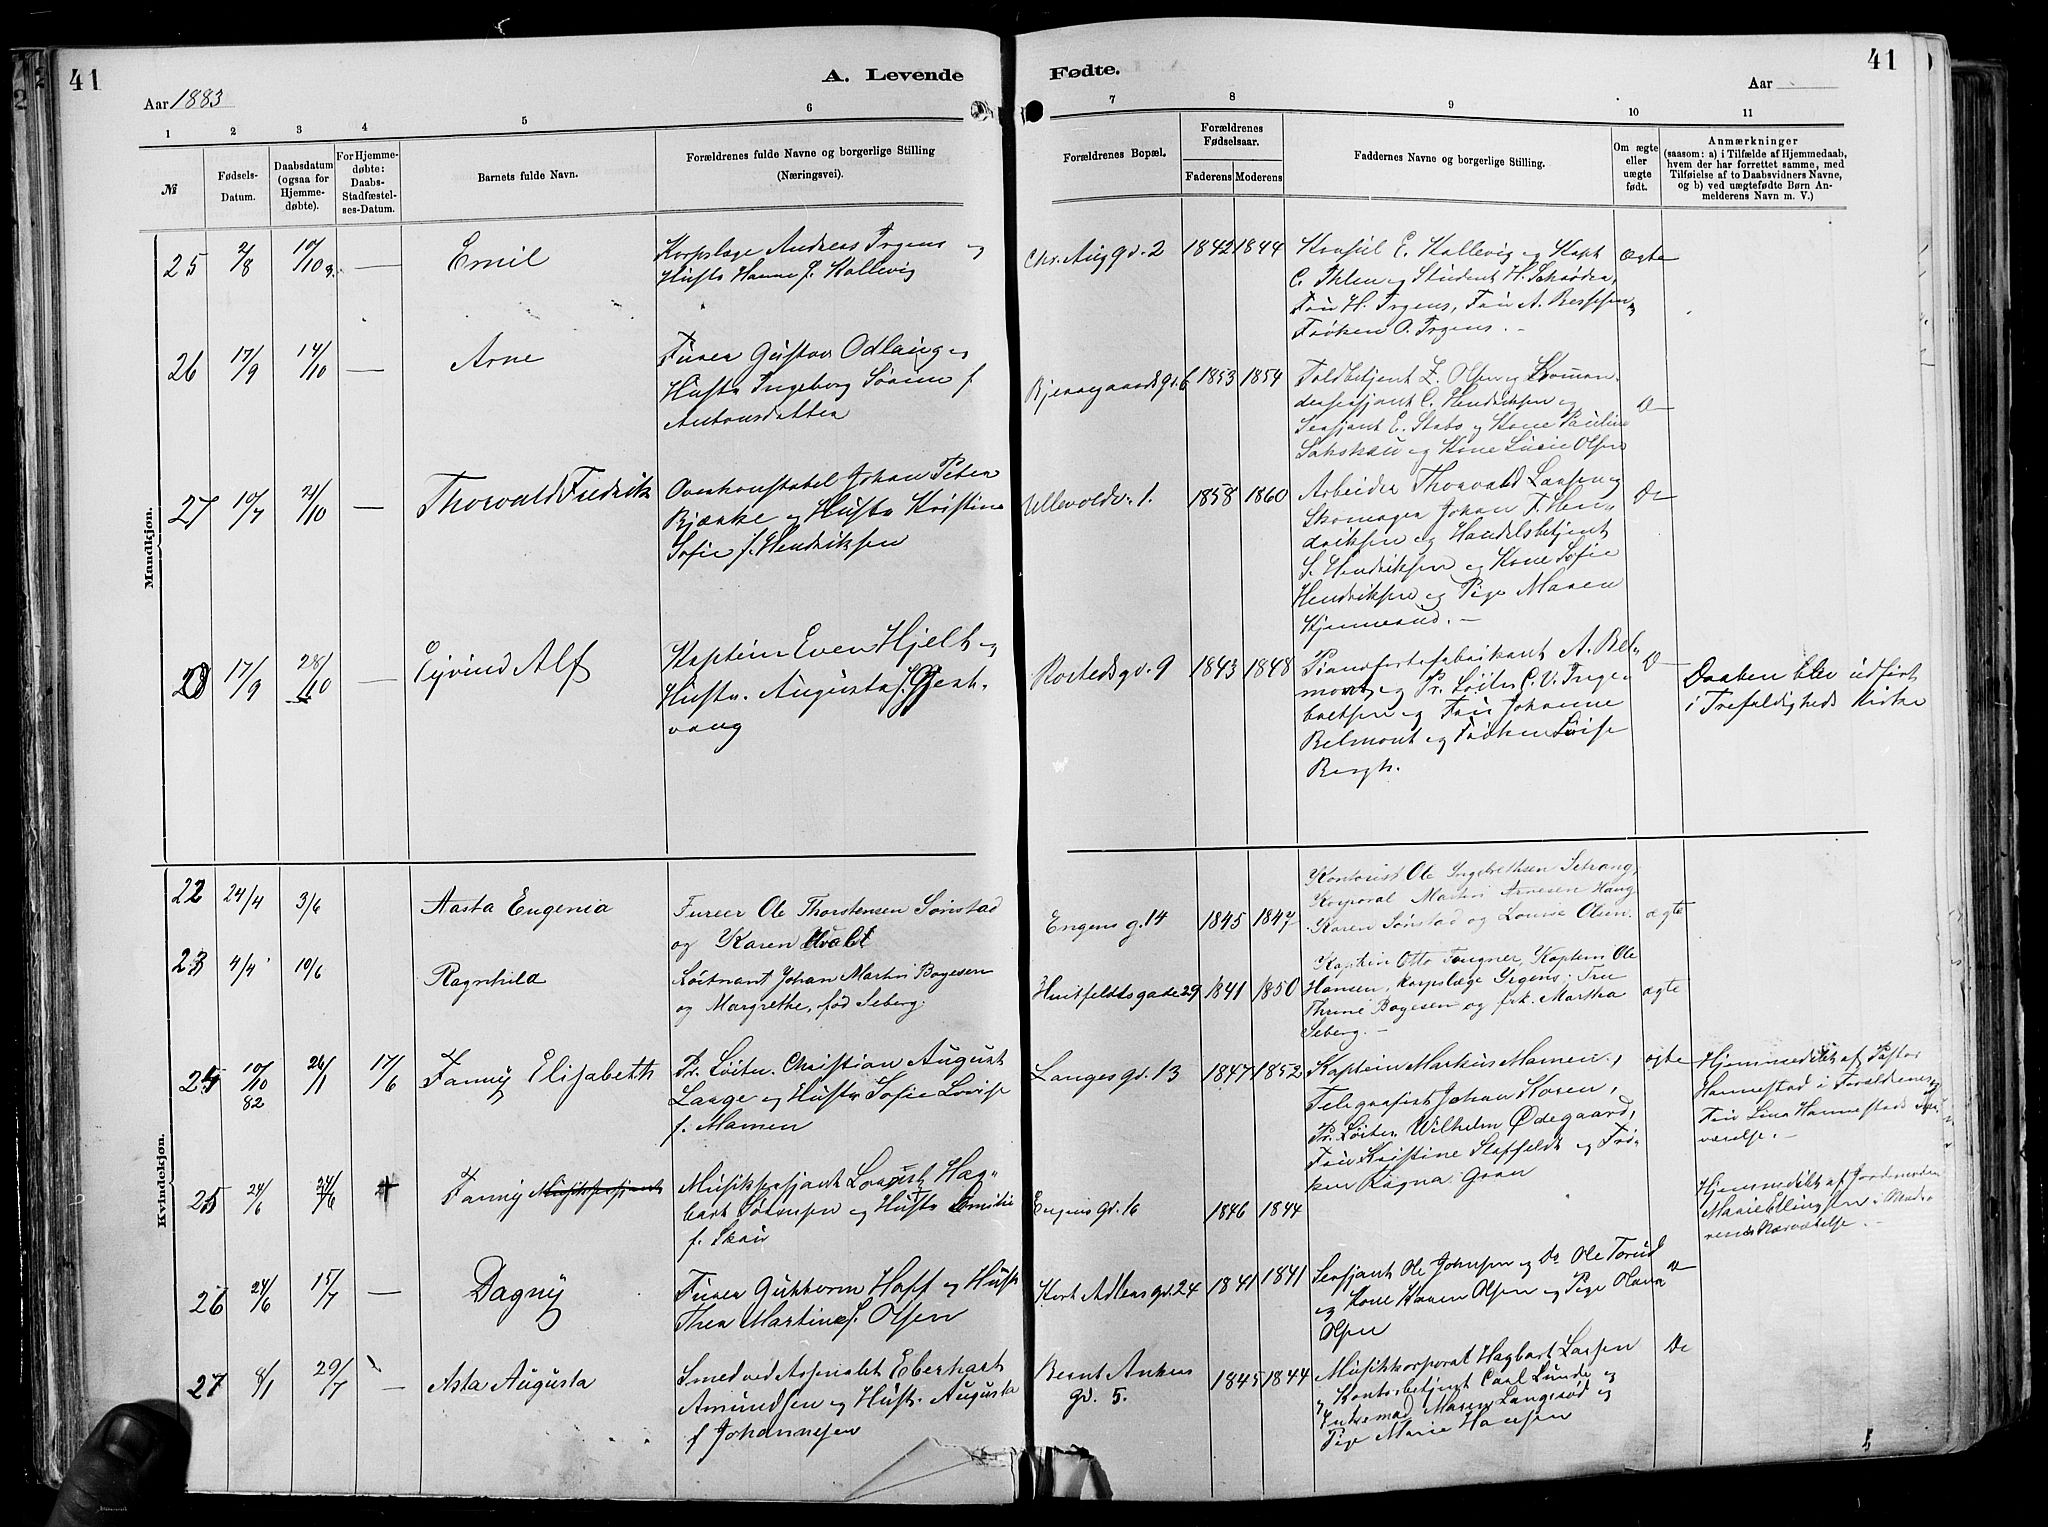 41
A. Levende
Fødte.
41
Aar 1883
Aar
1 2 3 4 5 6 7 8 9 10 11
№
Fødsels-
Datum.
Daabsdatum
(ogsaa for
Hjemme-
døbte).
For Hjemme-
døbte:
Daabs-
Stadfæstel-
ses-Datum.
Barnets fulde Navn.
Forældrenes fulde Navne og borgerlige Stilling
(Næringsvei).
Forældrenes Bopæl.
Forældrenes
Fødselsaar.
Faderens Moderens
Faddernes Navne og borgerlige Stilling.
Om ægte
eller
uægte
født.
Anmærkninger
(saasom: a) i Tilfælde af Hjemmedaab,
hvem der har forrettet samme, med
Tilføielse af to Daabsvidners Navne,
og b) ved uægtefødte Børn An-
melderens Navn m. V.)
Mandkjøn.
25 2/8 10/10 — Emil
Korpslæge Andreas Irgens og
Hustr Hanne f. Kallevig
Chr. Aug gd. 2 1842 1844
Konsul E. Kallevig og Kapt
C. Ihlen og Student H. Schrøder,
Frü H. Irgens, Frü A. Beppen
Frøken O. Irgens. —
Ægte
26 17/9 14/10 — Arne
Furer Güstav Odlaug og
Hustr Ingeborg Sørine f
Antonsdatter
Bjerregaards gd. 6 1853 1854
Toldbetjent Z. Olsen og Komman-
dersersjant C. Hendriksen og
Sersjant E. Stabo og Kone Pauline
Sakskau og Kone Lucie Olsen
D—
27 10/7 21/10 — Thorvald Fredrik
Overkonstabel Johan Peter
Bjærke og Hustr Kristine
Sofie f. Hendriksen
Ullevoldv. 1. 1858 1860
Arbeider Thorvald Larsen og
Skomager Johan F. Hen-
driksen og Handelsbetjent
S. Hendriksen og Kone Sofie
Hendriksen og Pige Maren
Kjennerud. —
Do
28 17/9 28/10 — Eyvind Alf
Kaptein Even Hjelt og
Hustr. Augusta f. Gjest-
vang
Rosteds gd. 9 1843 1848
Pianofortefabrikant A. Bel-
mont og Pr. Løitn C. V. Inge-
bretsen og Frü Johanne
Belmont og Frøken Lovise
Bergh.
D—
Daaben blev udført
i Trefoldigheds Kirke
Kvindekjøn.
22 24/4 3/6 Aasta Eugenia
Furer Ole Thorstensen Sønstad
og Karen
Engens g. 14 1845 1847
Kontorist Ole Ingebrethsen Setrang,
Korporal Martin Arnesen Haug
Karen Sønstad og Lovise Olsen.
ægte
23 4/4 10/6 Ragnhild
Løitnant Johan Martin Bøgesen
og Margrethe, fød Seberg.
Huitfeldtsgade 29 1841 1850
Kaptein Otto Fougner, Kaptein Ole
Hansen, Korpslæge Irgens, Fru
Thrine Bøgesen og frk. Martha
Seberg. —
ægte
24 10/10 82 26/1 17/6 Fanny Elisabeth
Pr. Løitn. Christian August
Lange og Hustr Sofie Lovise
f. Mamen
Langes gd. 13 1847 1852
Kaptein Markus Mamen,
Telegrafist Johan Koren,
Pr. Løitn. Wilhelm Ødegaard,
Frü Kristine Staffeldt og Frø-
ken Ragna Gran
ægte
Hjemmedøbt af Pastor
Hannestad i Forældrenes og
Frü Lina Hannestads Nær-
værelse. —
25 24/6 24/6 Fanny Musiksersjant
Musiksersjant Laurits Hag-
bart Sørensen og Hustr Emilie
f. Skau
Engens gd. 16 1846 1844
Hjemmedøbt af Jordemoder
Marie Ellingsen i Mode-
rens Nærværelse. —
26 24/6 15/7 — Dagny
Furer Guttorm Hoff og Hustr
Thea Martine f. Olsen
Kort Adlers gd. 24 1841 1841
Sersjant Ole Johnsen og Do Ole Torüd
og Kone Karen Olsen og Pige Olava
Olsen
D—
27 8/1 29/7 — Asta Augusta
Smed ved Arsenalet Eberhart
Amündsen og Hustr. Augusta
f Johannesen
Bernt Ankers
gd. 5. 1845 1844
Musikkorporal Hagbart Larsen
og Kontorbetjent Carl Lunde og
Enkemad Maren Langerød og
Pige Marie Hansen
Do